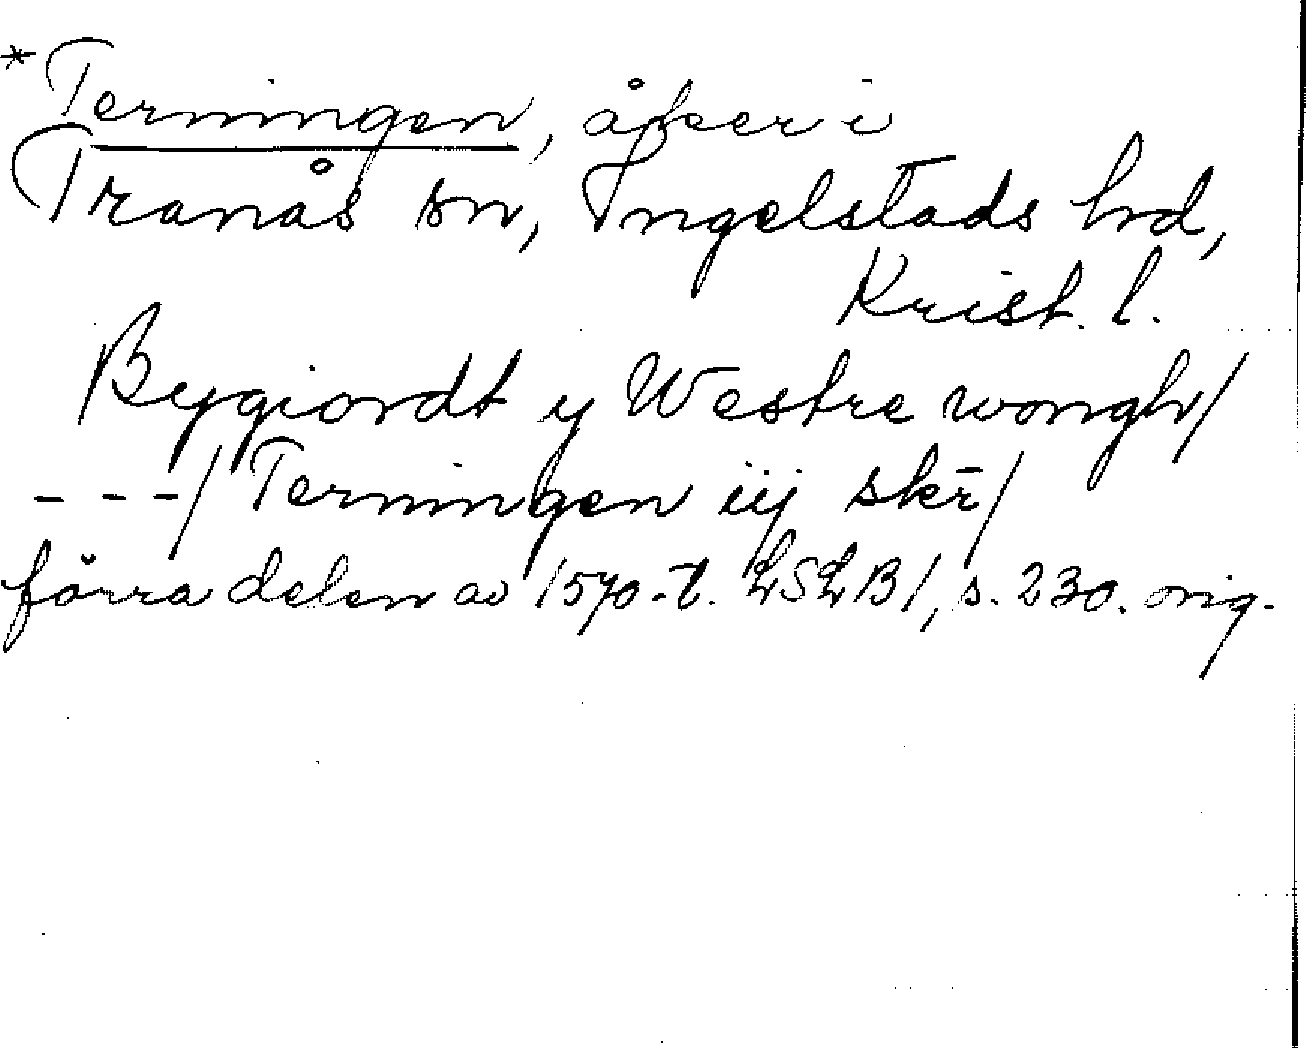 *Terningen, åker i
Tranås sn, Ingelstads hd,
Krist. l.
Bygiordt y Westre wongh/
---/ Terningen iij skr̄/
förra delen av 1570-t. LSLB1, s. 230. orig.